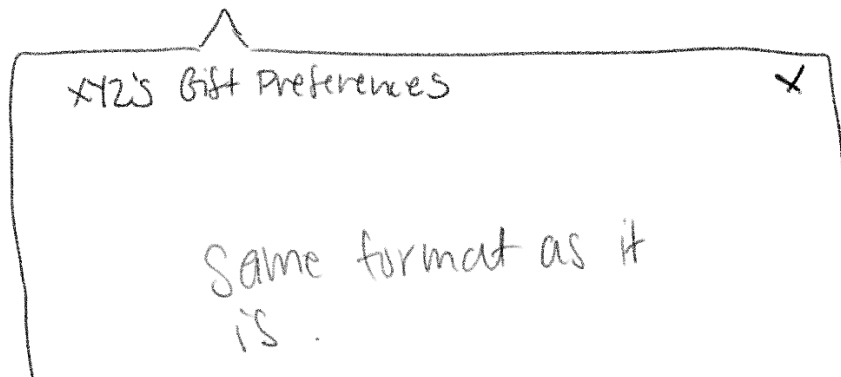 XYZ's Gift Preferences X
Same format as it
is.